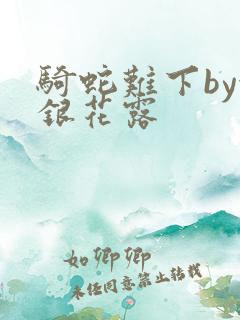 騎蛇難下by
銀花露
如卿卿
未经同意禁止转载